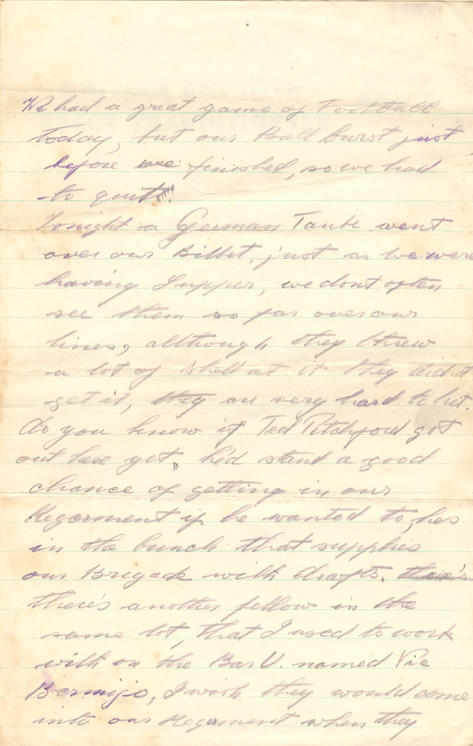 We had a great game of Football
today, but our Ball burst just
before we finished, so we had
to quit.
Tonight a German Taube went
over our Billet, just as we were
having Supper, we dont often
see them so far over our
lines, although they threw
a lot of shell at it they didn't
get it, they are very hard to hit.
Do you know if Ted Pitchford got
out here yet, he'd stand a good
chance of getting in our
Regerment if he wanted to, hes
in the bunch that supplies
our Brigade with drafts.
there's another fellow in the
same lot, that I used to work
with on the Bar U. named Vic
I wish they would come
into our Regerment when they